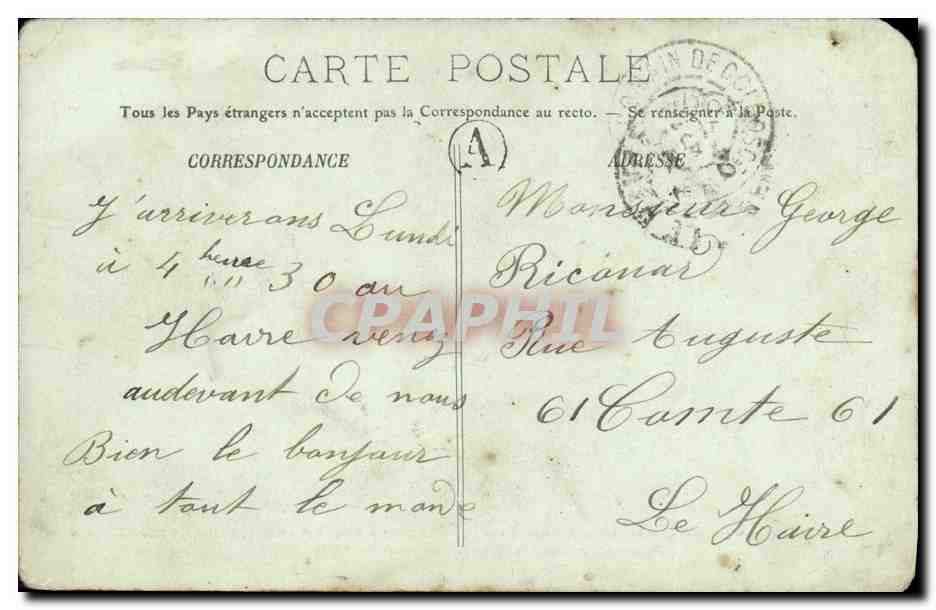 CARTE POSTALE
Tous les Pays étrangers n'acceptent pas la Correspondance au recto. — Se renseigner à la Poste.
CORRESPONDANCE
A
J'arriverons Lundi
à 4 heure 30 au
Havre venez
audevant de nous
Bien le bonjour
à tout le monde
ADRESSE
Monsieur George
Riconar
Rue Auguste
61 Comte 61
Le Havre
CPAPHIL